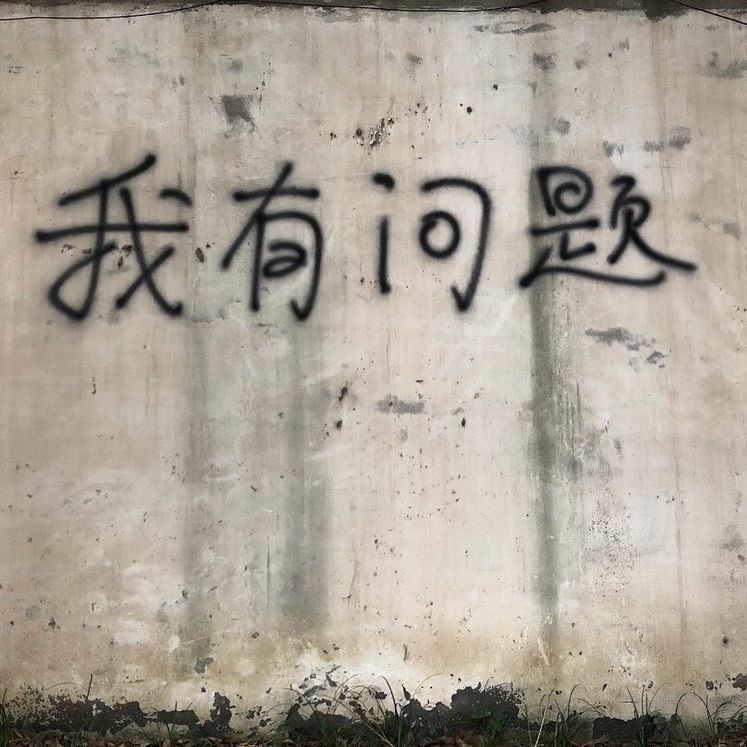 我有问题